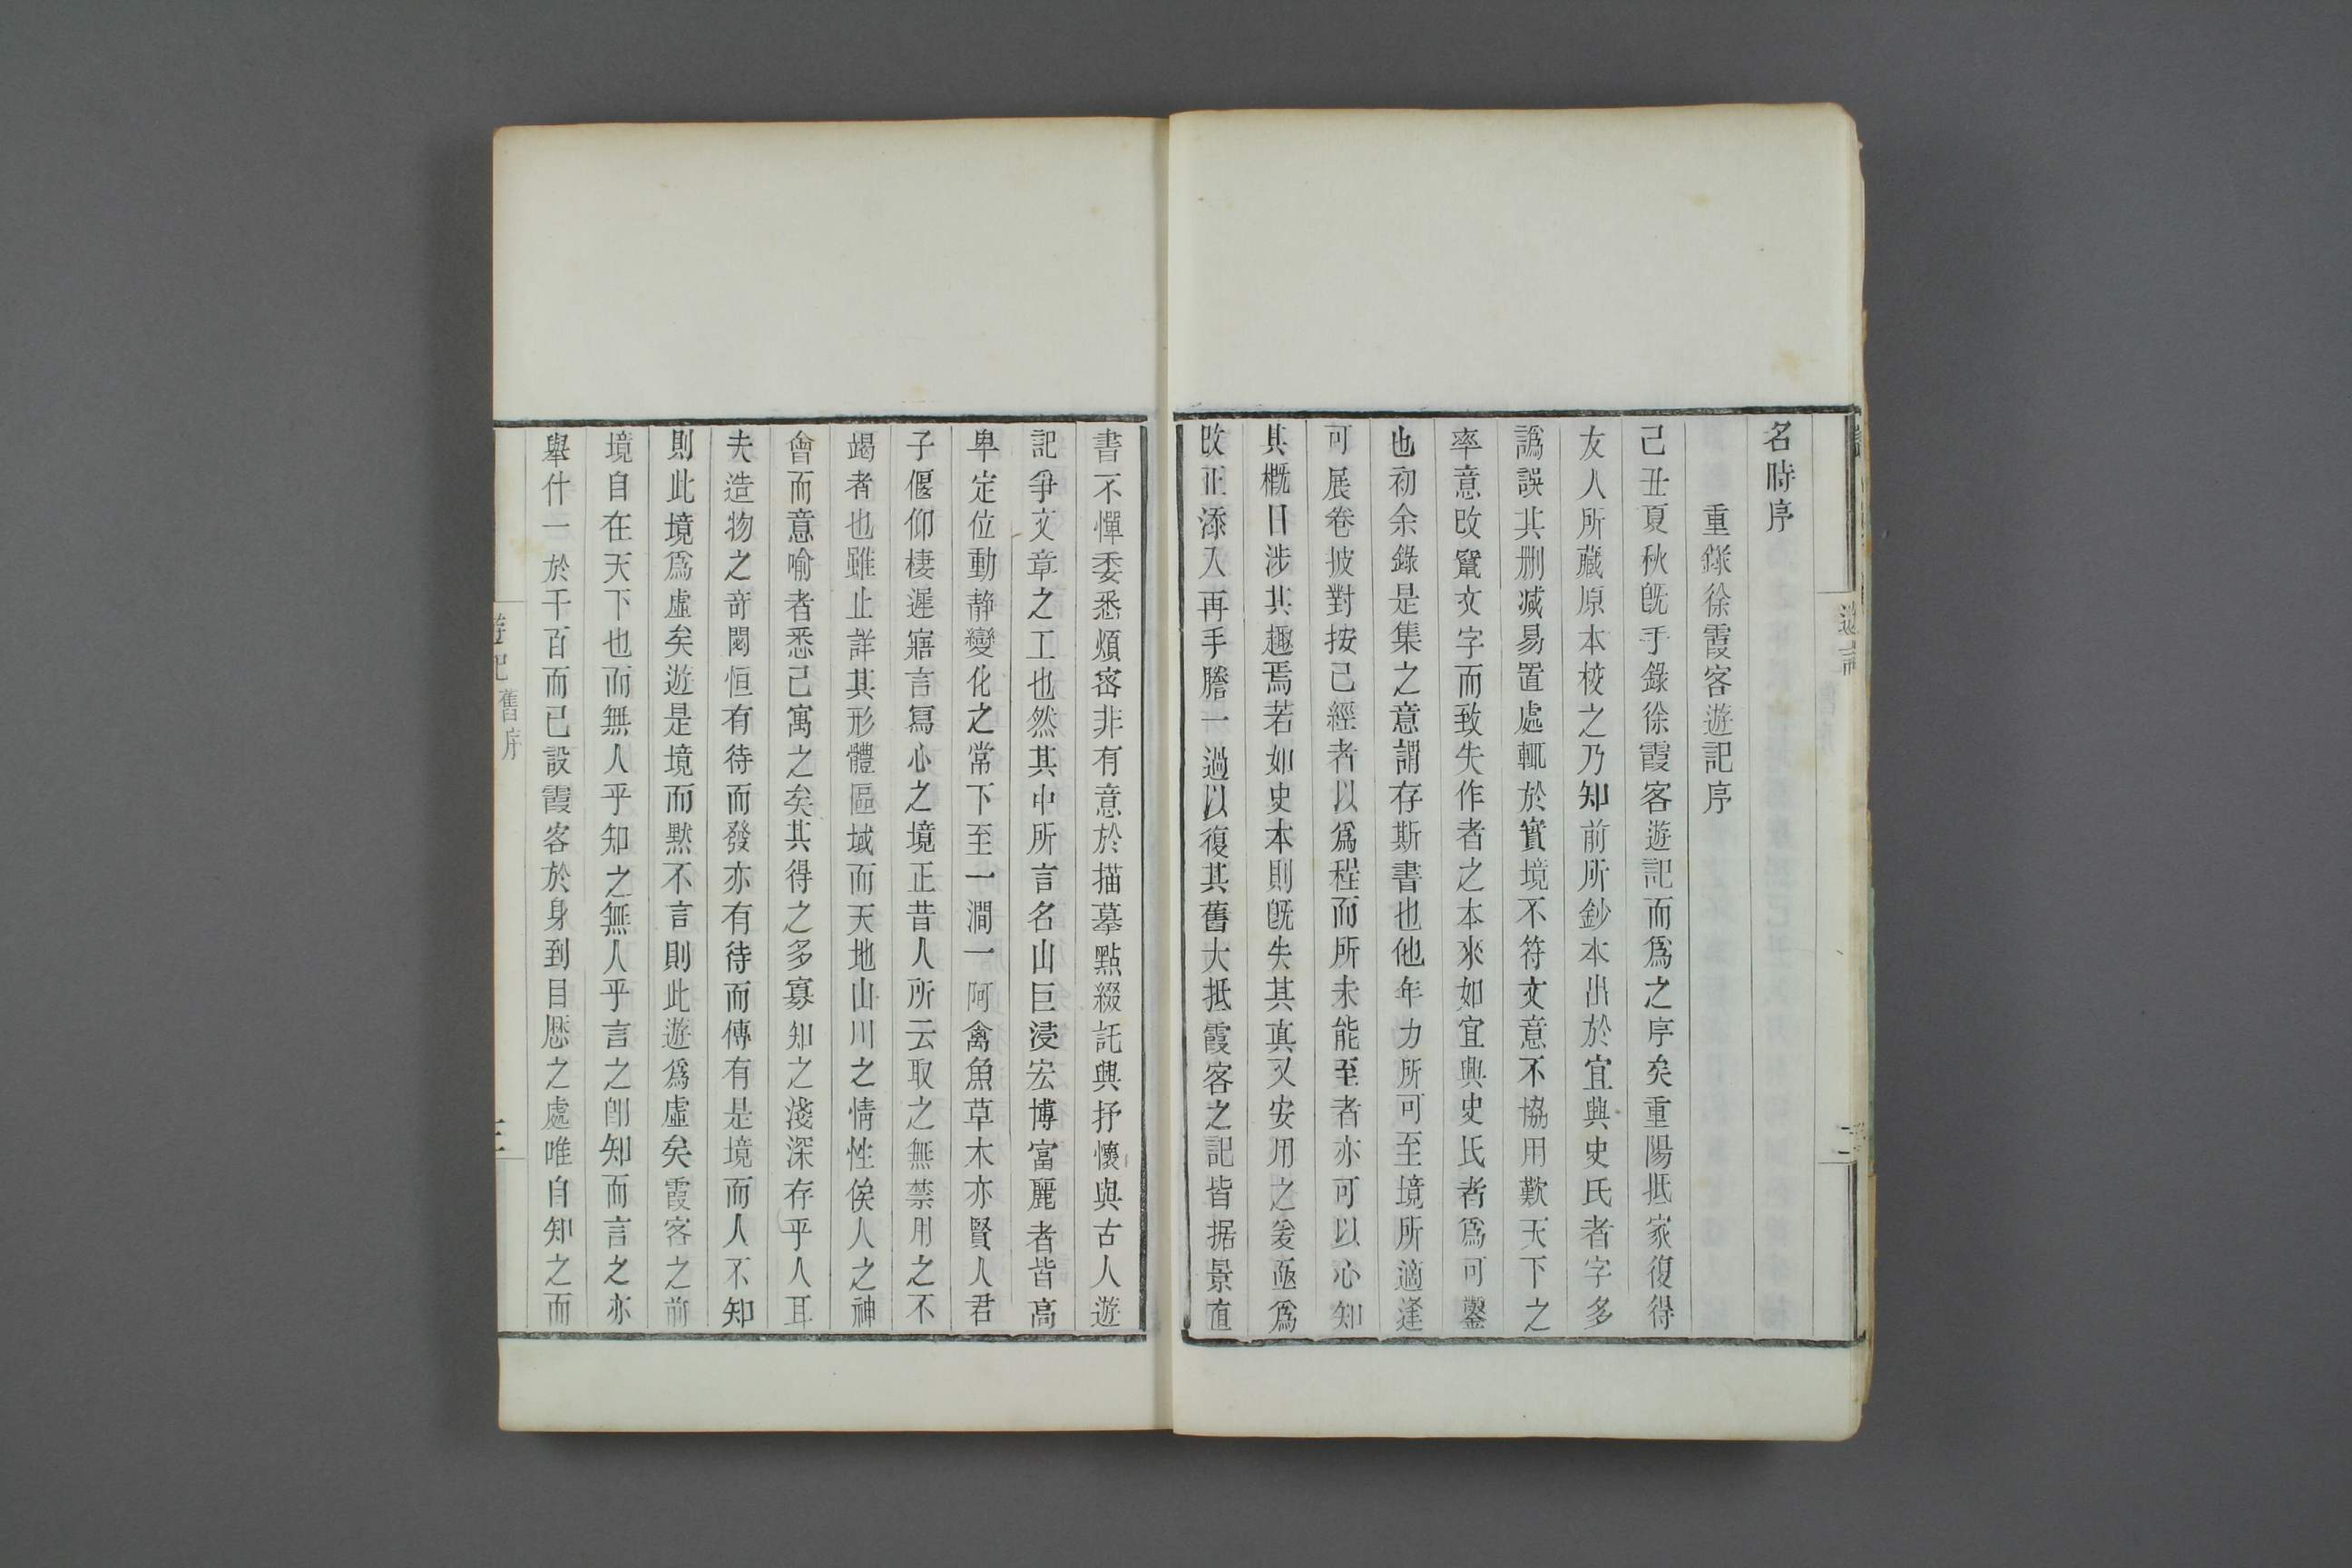 名時序
重錄徐霞客遊記序
己丑夏秋旣手錄徐霞客遊記而爲之序矣重陽抵家復得
友人所藏原本校之乃知前所鈔本出於宜興史氏者字多
譌誤其刪減易置處輒於實境不符文意不協用歎天下之
率意改竄文字而致失作者之本來如宜興史氏者爲可鑿
也初余錄是集之意謂存斯書也他年力所可至境所適逢
可展卷披對按己經者以爲程而所未能至者亦可以心知
其概日涉其趣焉若如史本則旣失其真又安用之爰亟爲
改正添入再手謄一過以復其舊大抵霞客之記皆据景直
書不憚委悉煩宻非有意於描摹點綴託興抒懷與古人遊
記爭文章之工也然其中所言名山巨浸宏博富麗者皆高
卑定位動靜變化之常下至一澗一阿禽魚草木亦賢人君
子偃仰棲遲寤言寫心之境正昔人所云取之無禁用之不
竭者也雖止詳其形體區域而天地山川之情性俟人之神
會而意喻者悉己寓之矣其得之多寡知之淺深存乎人耳
夫造物之奇閟恒有待而發亦有待而傳有是境而人不知
則此境爲虛矣遊是境而默不言則此遊爲虛矣霞客之前
境自在天下也而無人乎知之無人乎言之卽知而言之亦
舉什一於千百而已設霞客於身到目歷之處唯自知之而
遊記
舊序
三
遊記
二